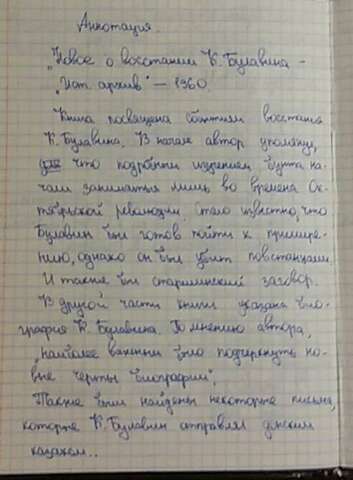 Аннотация.
„Новое о восстании К. Булавина –
„Ист. архив" – 1960.
Книга посвящена событиям восстания
К. Булавина. В начале автор упомянул,
что подробным изучением бунта на-
чали заниматься лишь во времена Ок-
тябрьской революции. Стало известно, что
Булавин был готов пойти к примире-
нию, однако он был убит повстанцами.
И также был старшинский заговор.
В другой части книги указана био-
графия К. Булавина. По мнению автора,
„наиболее важным было подчеркнуть но-
вые черты биографии".
Также были найдены некоторые письма,
которые К. Булавин отправлял донским
казакам..